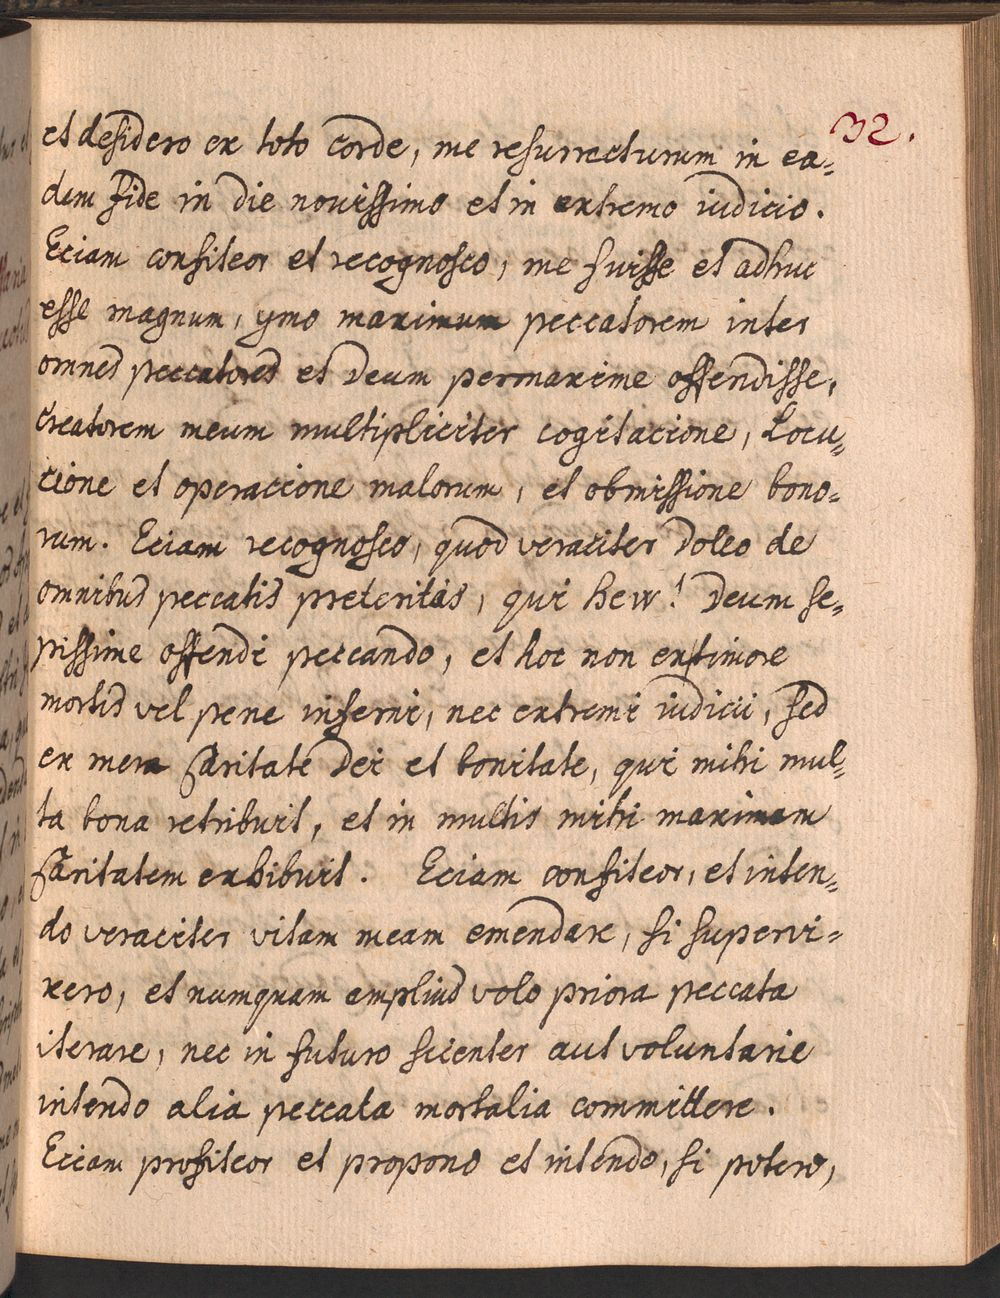 32.
et desidero ex toto corde, me resurrecturum in ea=
dem fide in die novissimo et in extremo iudicio.
Eciam confiteor et recognosco, me fuisse et adhuc
esse magnum, ymo maximum peccatorem inter
omnes peccatores et Deum permaxime offendisse,
creatorem meum multipliciter cogitacione, Locu=
cione et operacione malorum, et obmissione bono=
rum. Eciam recognosco, quod veraciter doleo de
omnibus peccatis preteritis, qui hew! Deum se=
pissime offendi peccando, et hoc non ex timore
mortis vel pene inferni, nec extremi iudicii, sed
ex mera Caritate Dei et bonitate, qui mihi mul=
ta bona retribuit, et in multis mihi maximam
Caritatem exhibuit. Eciam confiteor, et inten=
do veraciter vitam meam emendare, si supervi=
xero, et numquam amplius volo priora peccata
iterare, nec in futuro scienter aut voluntarie
intendo alia peccata mortalia committere.
Eciam profiteor et propono et intendo, si potero,